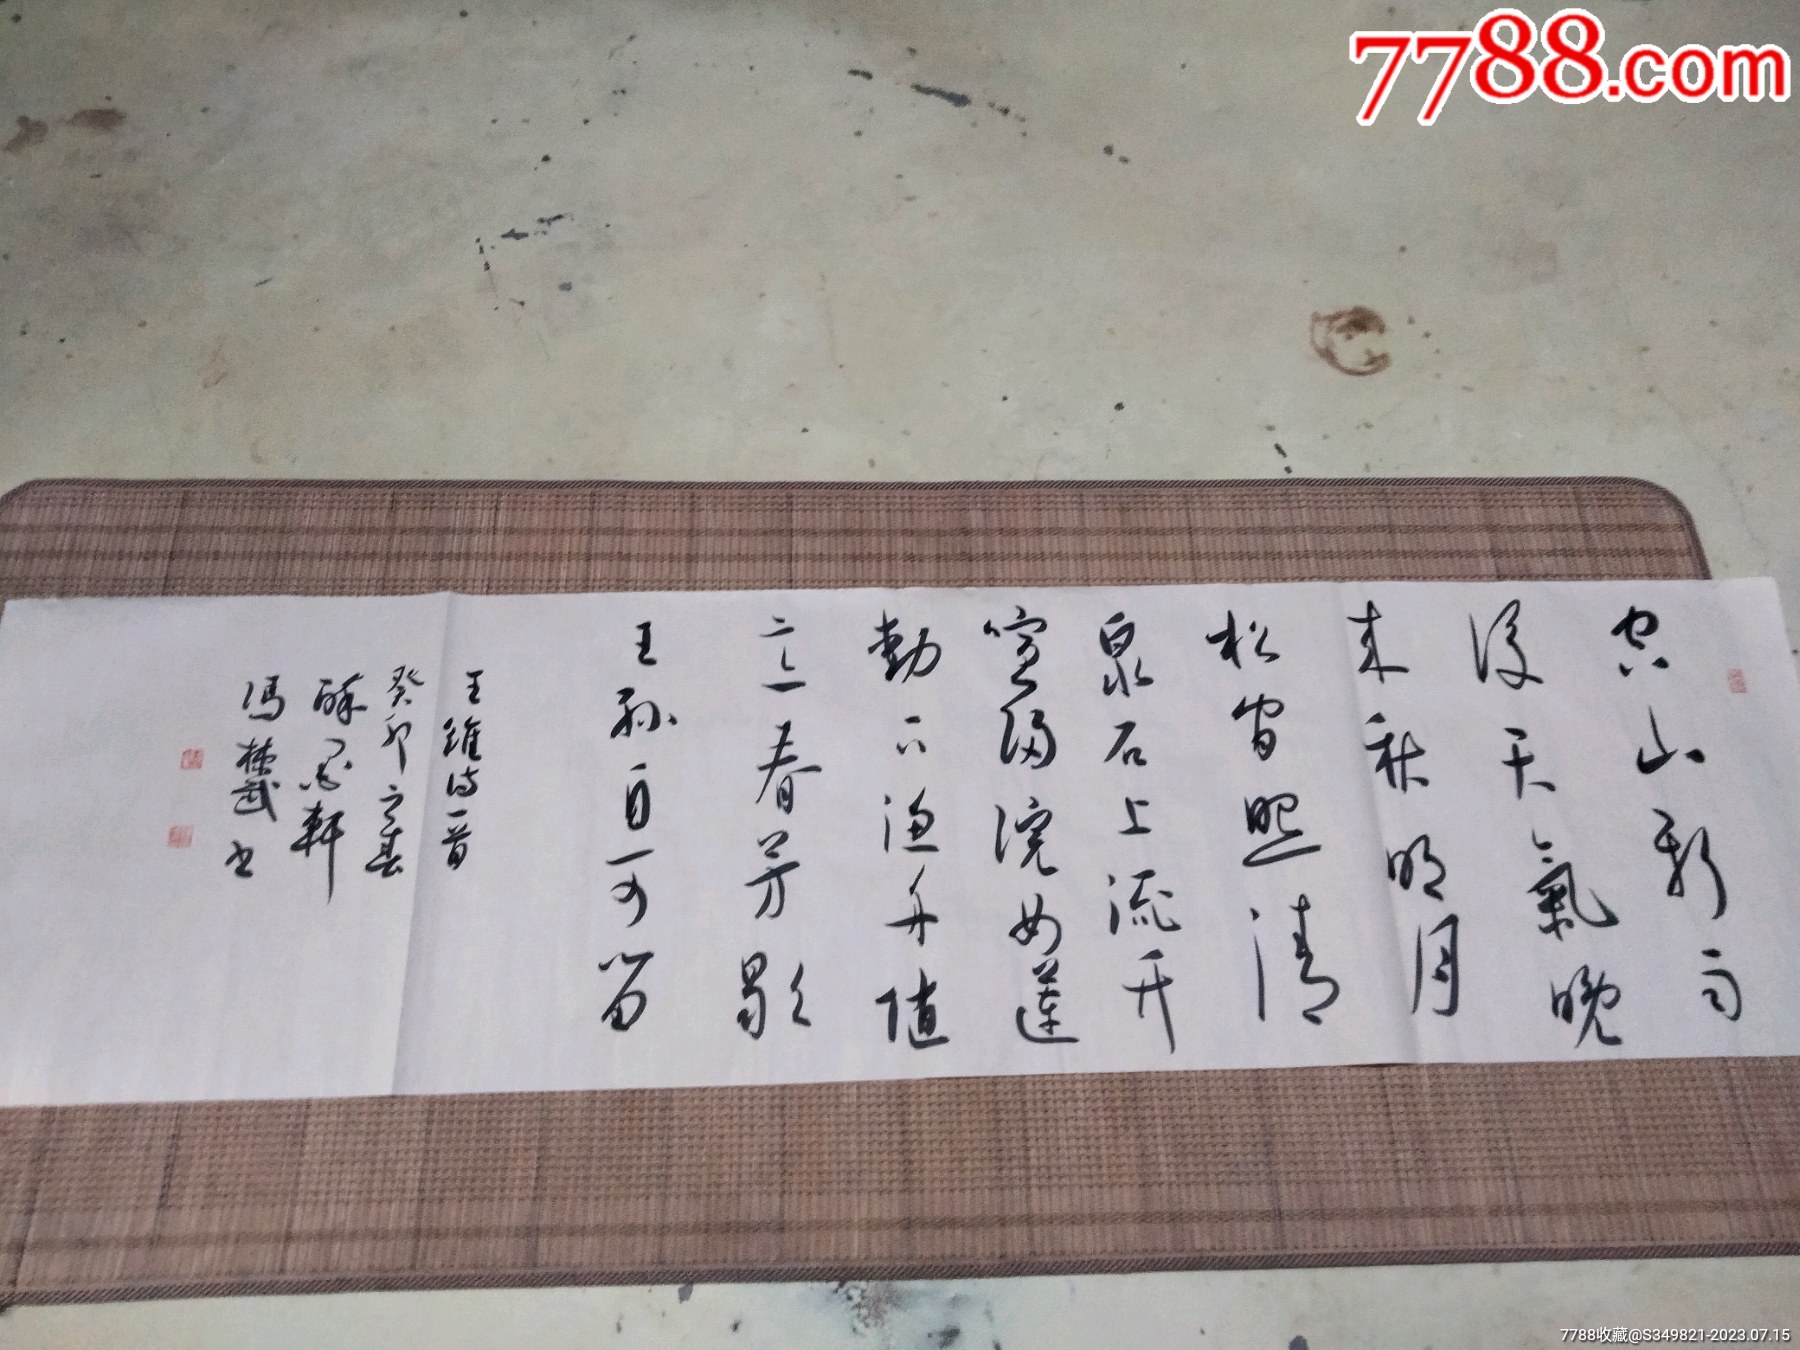 7788.com
空山新雨
後天氣晚
来秋明月
松間照清
泉石上流竹
喧歸浣女蓮
動下漁舟隨
意春芳歇
王孫自可留
王維诗一首
癸卯之
軒
馮武书
7788收藏@S349821-2023.07.15